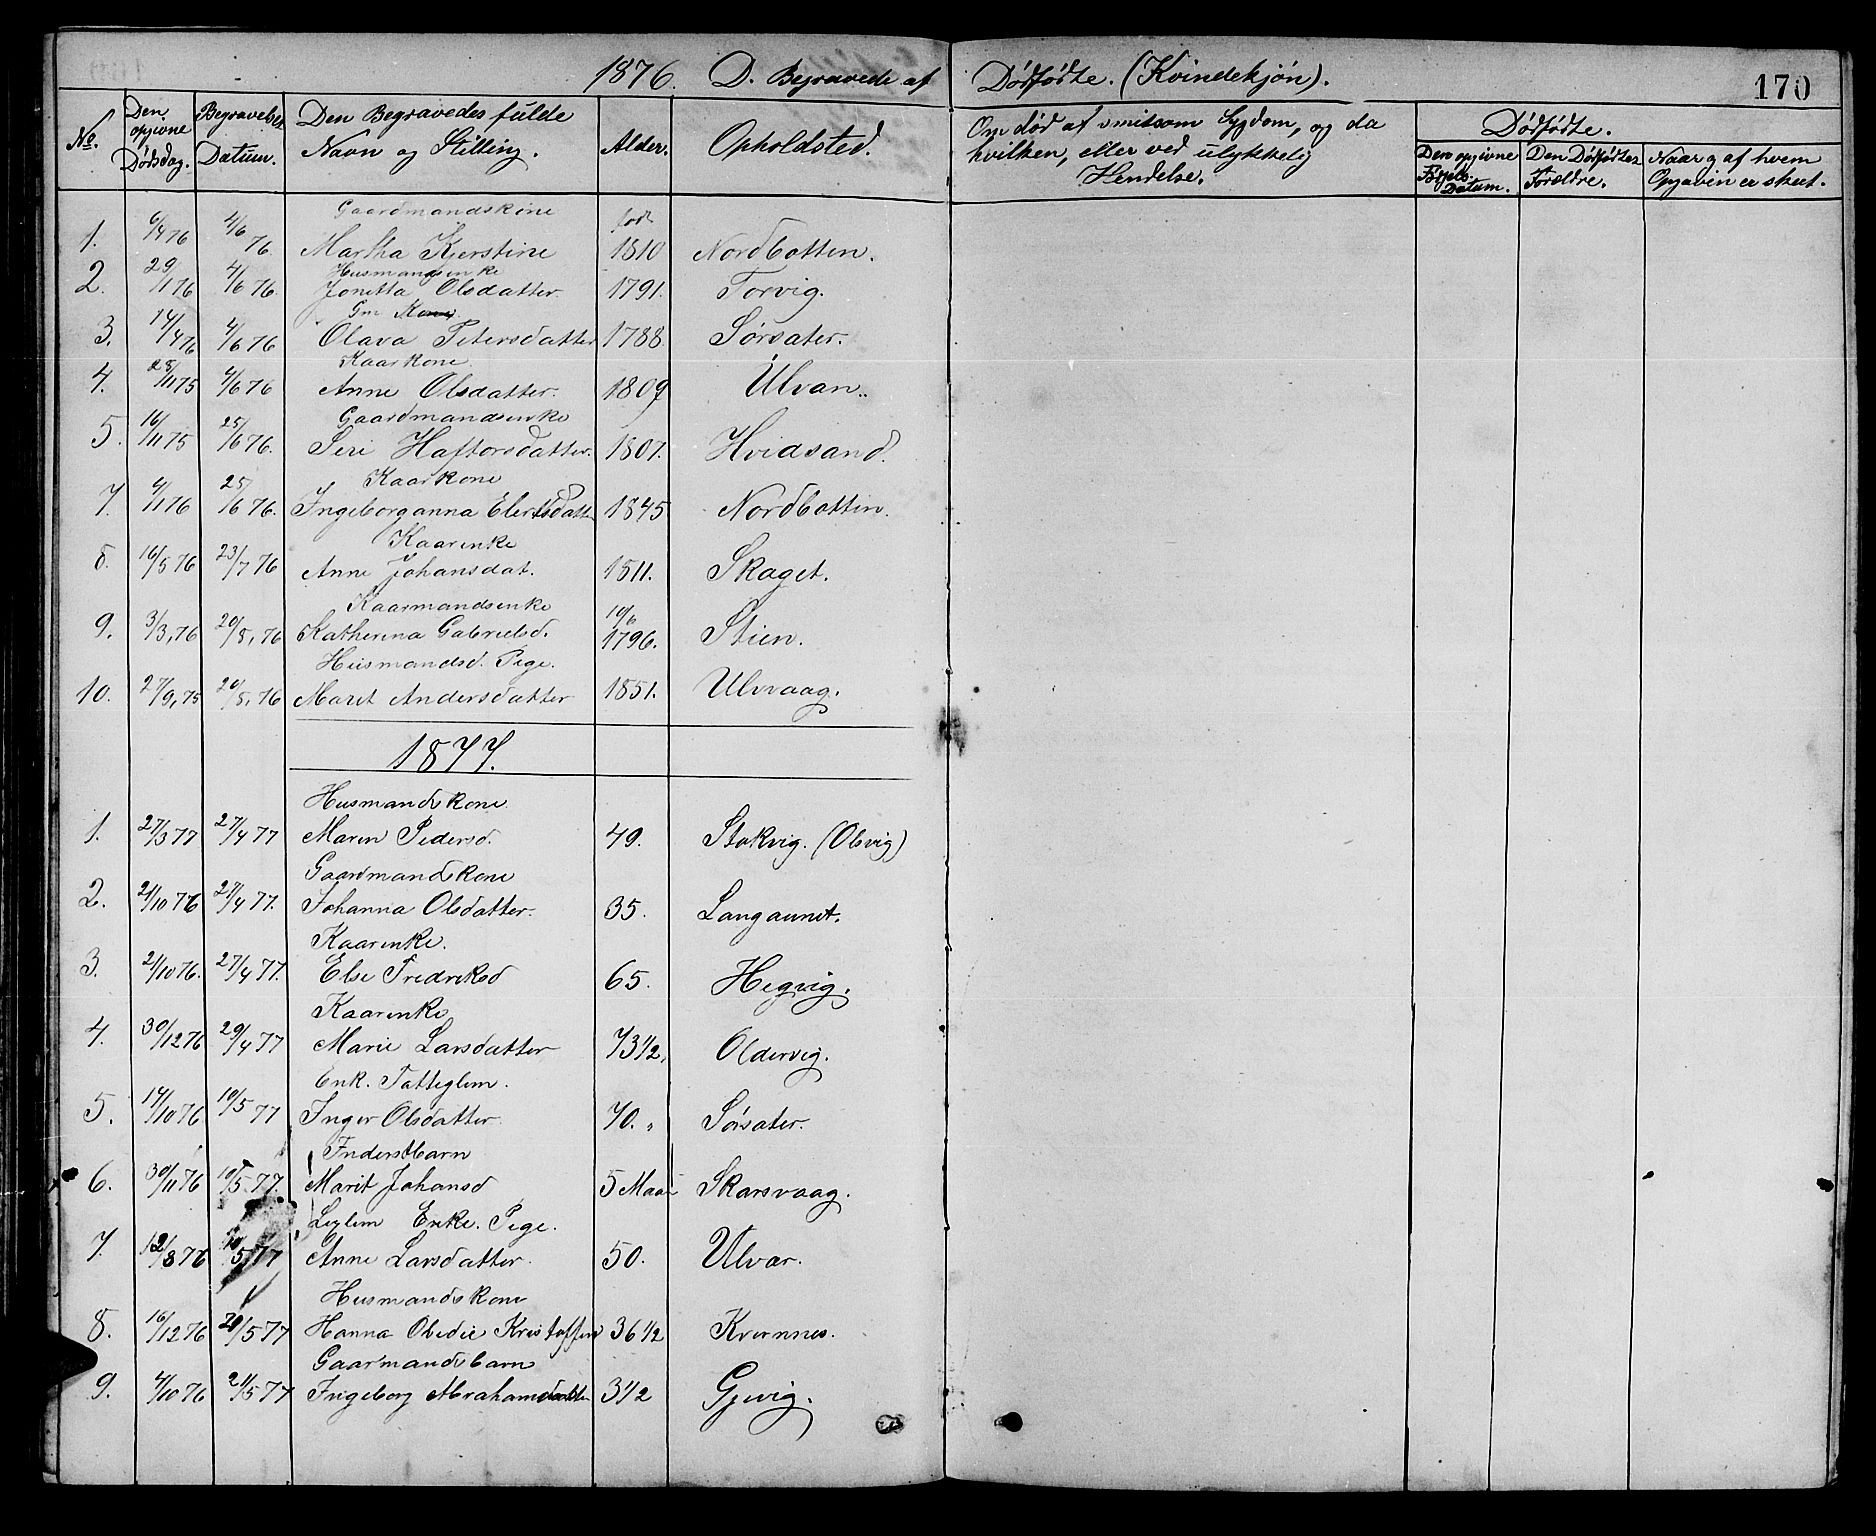 1876. D. Begravede af Dødfødte. (Kvindekjøn). 170
No. Den opgivne Dødsdag. Begravelses Datum. Den Begravedes fulde Navn og Stilling. Alder. Opholdsted. Om død af smitsom Sygdom, og da hvilken, eller ved ulykkelig Hendelse. Dødfødte. Den opgivne Fødsels Datum. Den Dødfødtes Forældre. Naar og af hvem Opgavin er skeet.
Gaardmandskone født
1. 6/4 76 4/6 76. Martha Kjerstine 1810 Nordbotten.
Husmandsenke
2. 29/1 76 4/6 76. Jonetta Olsdatter. 1791. Torvig.
Gm Kone.
3. 14/4 76 4/6 76 Olava Petersdatter 1788 Sørsater.
Kaarkone
4. 28/11 75 4/6 76 Anne Olsdatter. 1809 Ulvan.
Gaardmandsenke
5. 16/11 75 25/6 76. Seri Haftorsdatter. 1807. Hvidsand.
Kaarkone
7. 4/1 76 25/6 76. Ingeborganna Elertsdatter 1845 Nordbottin.
Kaarenke
8. 16/5 76 23/7 76 Anne Johansdat. 1811. Skaget.
Kaarmandsenke
9. 3/3, 76 20/8, 76 Katherina Gabrielsd. 10/6 1796. Stien.
Husmandsd. Pige.
10. 27/9, 75 20/8, 76 Marit Andersdatter 1851. Ulvvaag.
1877.
Husmandskone
1. 27/3 77 27/4 77 Maren Pedersd. 49. Stokvig. (Olsvig)
Gaardmandskone
2. 21/10 76 27/4 77. Johanna Olsdatter. 35. Langaunet.
Kaarenke.
3. 21/10 76. 27/4 77. Else Fredriksd 65. Hegvig.
Kaarenke
4. 30/12 76 29/4 77 Marie Larsdatter 73 1/2, Oldervig.
Enk. Fattiglem.
5. 14/10 76 10/5 77 Inger Olsdatter. 70. " Sørsater.
Inderstbarn
6. 30/11 76 10/5 77. Marit Johansd 5 Maan Skarsvaag.
Leglem Enke. Pige.
7. 12/8 76 10/5 77 Anne Larsdatter. 50. Ulvar.
Husmandskone
8. 16/12 76 20/5 77 Hanna Obedie Kristoffers 36 1/2 Kvernnes.
Gaarmandsbarn
9. 4/10 76 21/5 77 Ingeborg Abrahamsdatter 3 1/2 Gjevig.